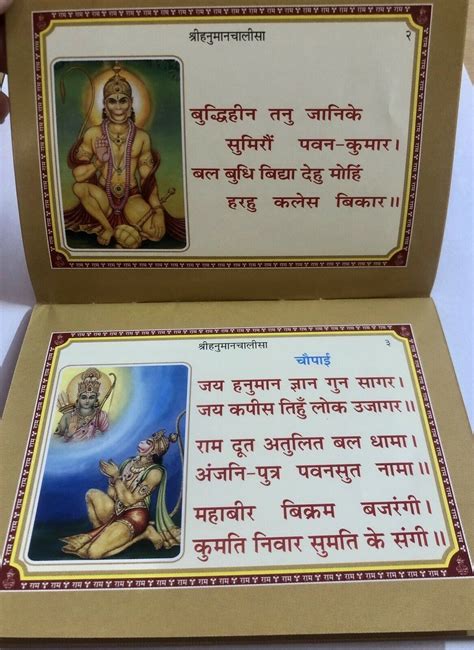 श्रीहनुमानचालीसा २
बुद्धिहीन तनु जानिके
सुमिरौं पवन-कुमार।
बल बुधि बिद्या देहु मोहिं
हरहु कलेस बिकार॥
श्रीहनुमानचालीसा ३
चौपाई
जय हनुमान ज्ञान गुन सागर।
जय कपीस तिहुँ लोक उजागर॥
राम दूत अतुलित बल धामा।
अंजनि-पुत्र पवनसुत नामा॥
महाबीर बिक्रम बजरंगी।
कुमति निवार सुमति के संगी॥